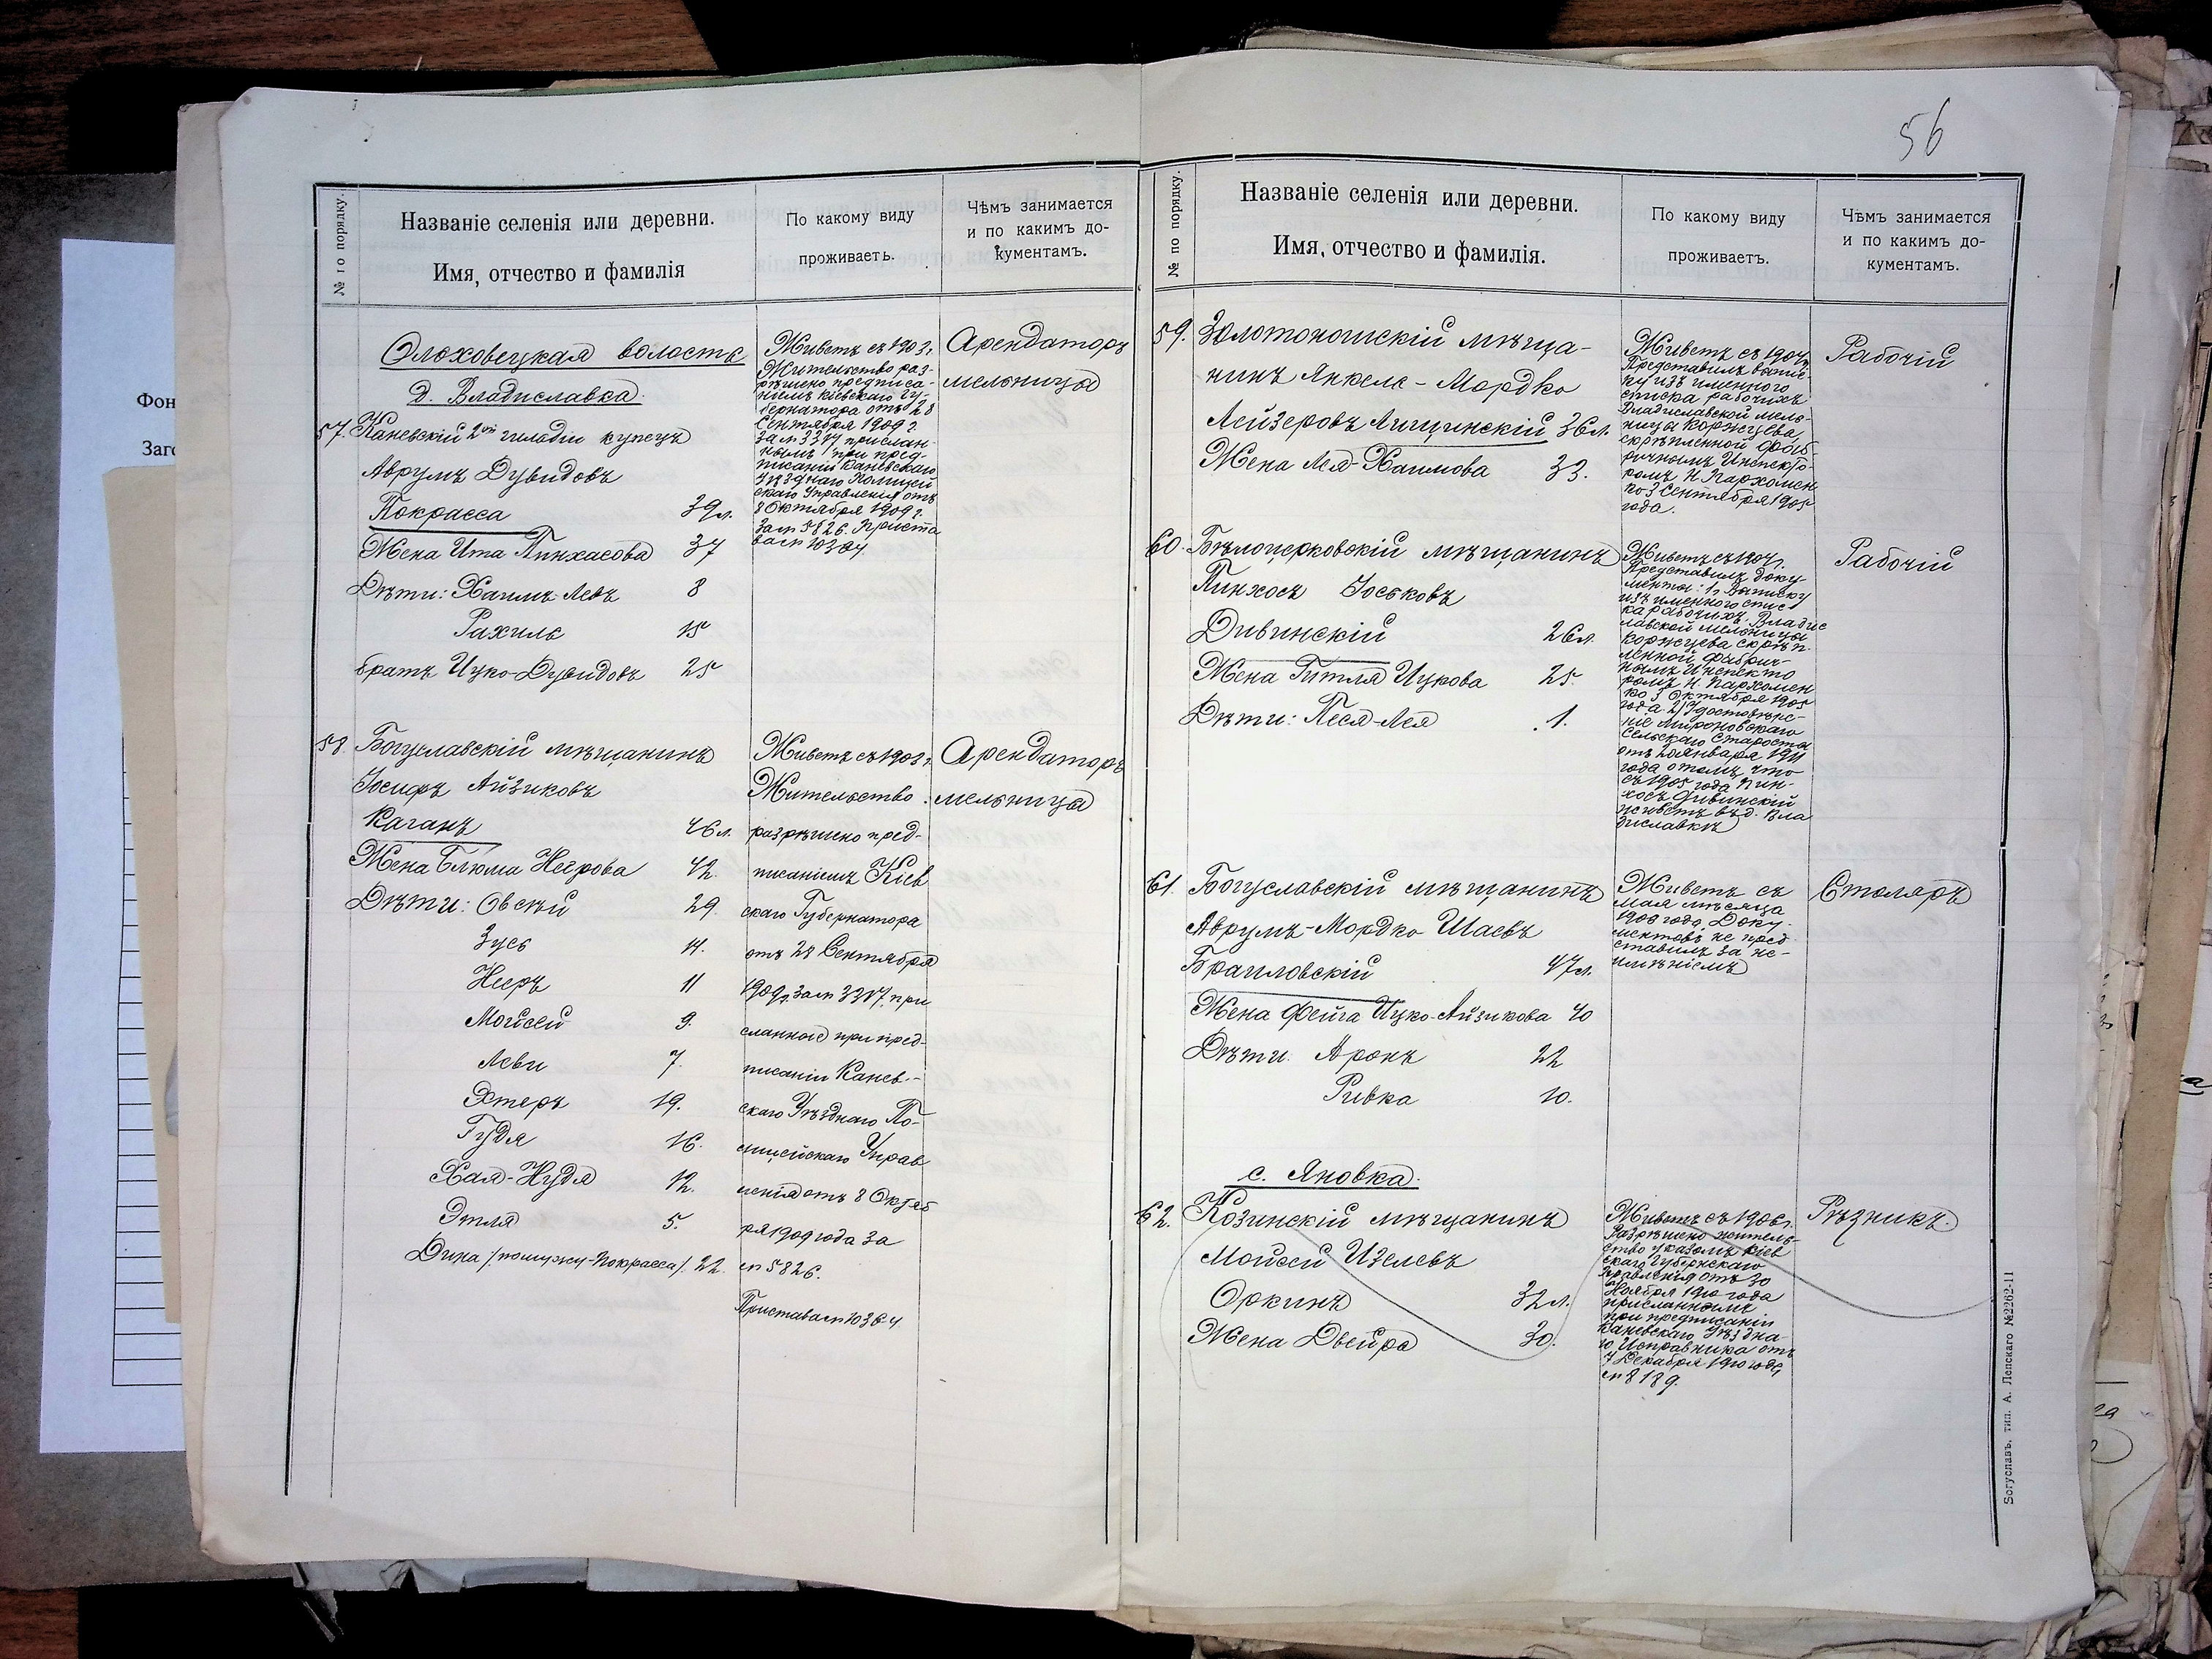 56
№ по порядку.
Названіе селенія или деревни.
Имя, отчество и фамилія
По какому виду
проживаетъ.
Чѣмъ занимается
и по какимъ до-
кументамъ.
Ольховецкая волость
д. Владиславка.
57. Каневскій 2ой гильдіи купецъ
Аврумъ Дувидовъ
Покрасса 39 л.
Жена Ита Пинхасова 37
Дѣти: Хаимъ-Левъ 8
Рахиль 15
братъ Ицко-Дувидовъ 25
Живетъ съ 1903 г.
Жительство раз-
рѣшено предписа-
ніемъ Кіевскаго Гу-
бернатора отъ 28
Сентября 1909 г.
за № 3317 прислан-
нымъ при пред-
писаніи Каневскаго
Уѣзднаго Полицей
скаго Управленія отъ
8 Октября 1909 г.
за № 5826. Пристa
ва № 10364
Арендаторъ
мельницы
58. Богуславскій мѣщанинъ
Іосифъ Айзиковъ
Каганъ 46 л.
Жена Блюма Несрова 42.
Дѣти: Овсѣй 29.
Зусь 14.
Несръ 11
Мойсей 9.
Леви 7.
Эстеръ 19.
Гудя 16.
Хая-Нудя 12.
Этля 5.
Дина /по мужу-Покрасса/. 22.
Живетъ съ 1903 г.
Жительство
разрѣшено пред-
писаніемъ Кіев
скаго Губернатора
отъ 28 Сентября
1909 г. за № 3317, при
сланной при пред-
писаніи Канев-
скаго Уѣзднаго По-
лицейскаго Управ
ленія отъ 8 Октяб
ря 1909 года за
№ 5826.
Пристава № 10364
Арендаторъ
мельницы
№ по порядку.
Названіе селенія или деревни.
Имя, отчество и фамилія.
По какому виду
проживаетъ.
Чѣмъ занимается
и по какимъ до-
кументамъ.
59. Золотоношскій мѣща-
нинъ Янкель-Мордко
Лейзеровъ Лищинскій 36 л.
Жена Лея-Хаимова 33.
Живетъ съ 1904 г.
Представилъ выпис-
ку изъ именного
списка рабочихъ
Владиславской мель-
ницы Коржцева,
скрѣпленной Фаб-
ричнымъ Инспекто-
ромъ Н. Пархомен
ко 3 Сентября 1905
года.
Рабочій
60. Бѣлоцерковскій мѣщанинъ
Пинхосъ Іоськовъ
Дивинскій 26 л.
Жена Гитля Ицкова 25.
Дѣти: Песя-Лея 1.
Живетъ съ 1904 г.
Представилъ доку-
менты: 1, Выписку
изъ именного спис
ка рабочихъ Владис
лавской мельницы
Коржцева скрѣп.
ленной фабрич-
нымъ Инспекто
ромъ Н. Пархомен
ко 3 Октября 1905
года 2/ Удостовѣре-
ніе Мироновскаго
Сельскаго Старосты
отъ 20 Января 1911
года о томъ, что
съ 1905 года Пин-
хосъ Дивинскій
живетъ въ д. Вла
диславкѣ
Рабочій
61. Богуславскій мѣщанинъ
Аврумъ-Мордко Шаевъ
Браиловскій 47 л.
Жена Фейга Ицко-Айзикова 40
Дѣти: Аронъ 22
Ривка 10.
Живетъ съ
мая мѣсяца
1906 года. Доку-
ментовъ не пред
ставилъ за не-
имѣніемъ
Столяръ
с. Яновка.
62. Козинскій мѣщанинъ
Мойсей Изелевъ
Оркинъ 32 л.
Жена Двейра 30.
Живетъ съ 1906 г.
Разрѣшено житель-
ство указомъ Кіев
скаго Губернскаго
Правленія отъ 30
Ноября 1910 года
присланнымъ
при предписаніи
Каневскаго Уѣздна-
го Исправника отъ
7 Декабря 1910 года,
№ 8189.
Рѣзникъ.
Богуславъ, тип. А. Лепскаго №2262-11
Фон
Заго